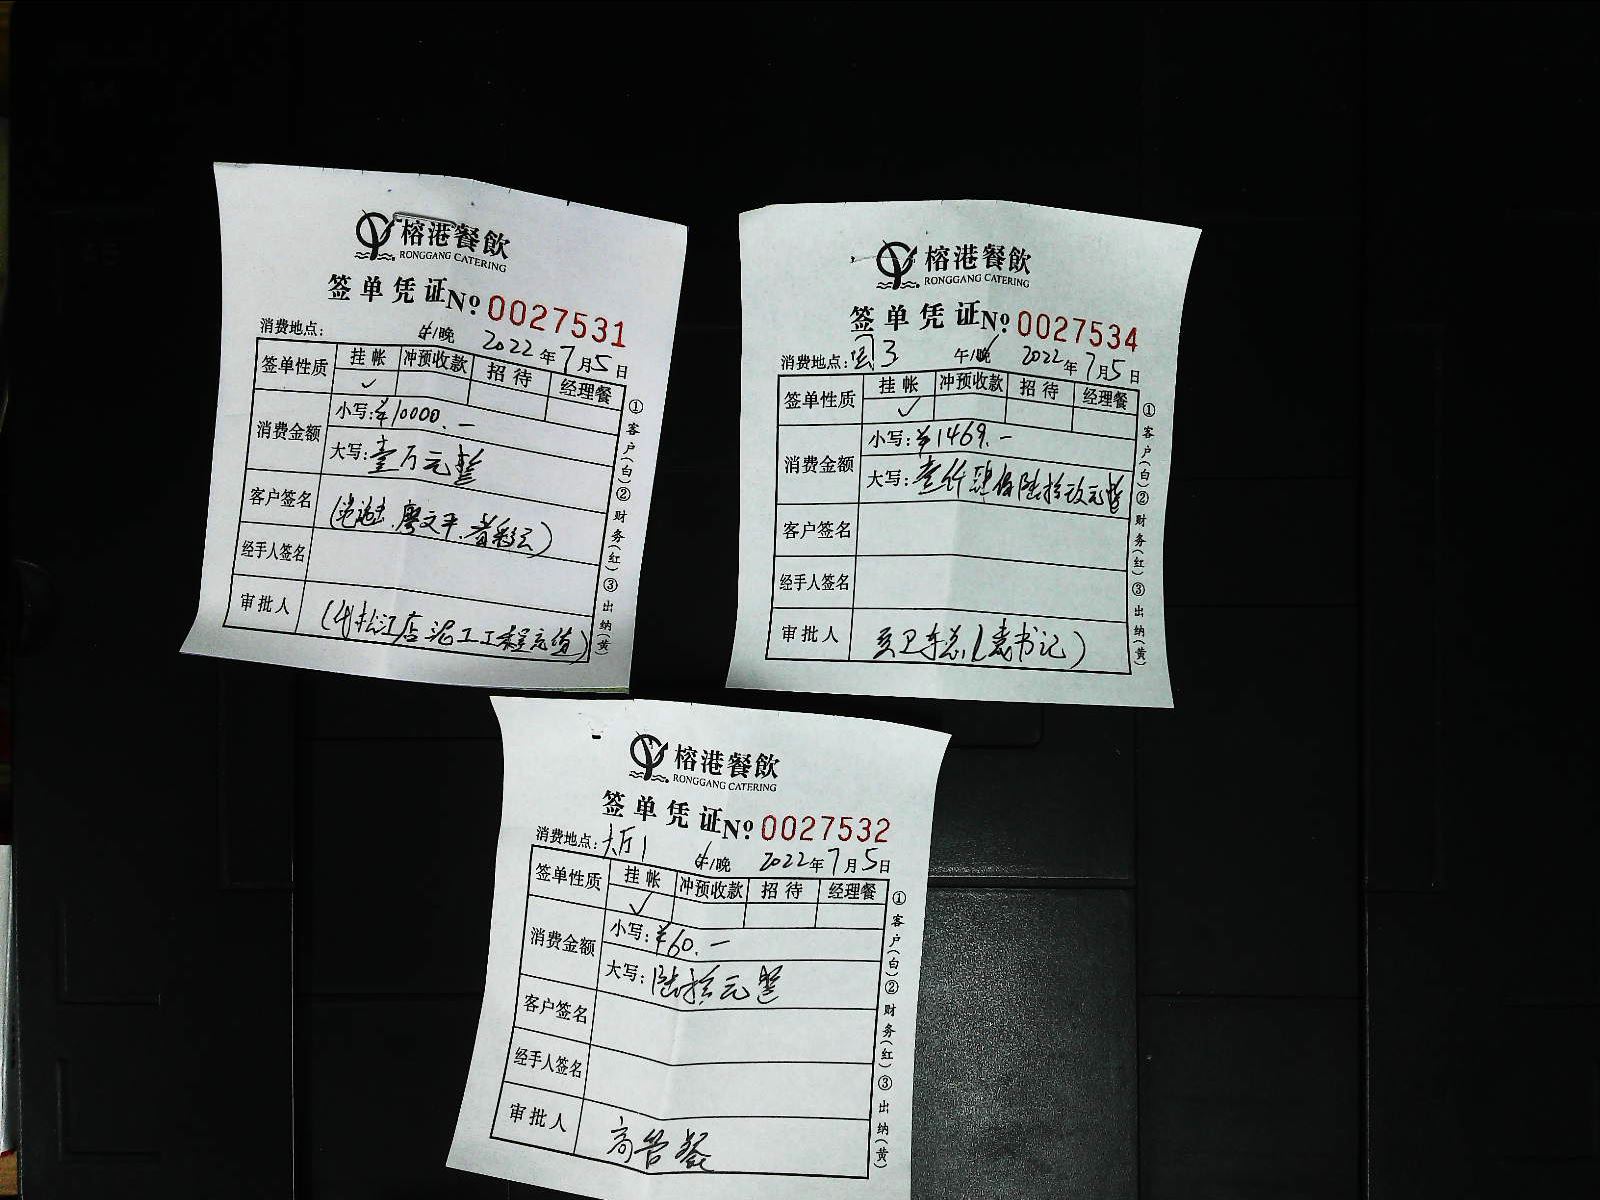 榕港餐飲
RONGGANG CATERING
签单凭证 № 0027531
消费地点： 午/晚 2022年7月5日
签单性质 挂帐 冲预收款 招待 经理餐
✓
消费金额 小写：¥10000.—
大写：壹万元整
客户签名 廖文平
经手人签名
审批人 松江店泥工工程充值）
①客户（白）②财务（红）③出纳（黄）
榕港餐飲
RONGGANG CATERING
签单凭证 № 0027534
消费地点： 3 午/晚 2022年7月5日
签单性质 挂帐 冲预收款 招待 经理餐
✓
消费金额 小写：¥1469.—
大写：壹仟肆佰陆拾玖元整
客户签名
经手人签名
审批人 李总（袁书记）
①客户（白）②财务（红）③出纳（黄）
榕港餐飲
RONGGANG CATERING
签单凭证 № 0027532
消费地点：大厅1 午/晚 2022年7月5日
签单性质 挂帐 冲预收款 招待 经理餐
✓
消费金额 小写：¥60.—
大写：陆拾元整
客户签名
经手人签名
审批人 高管餐
①客户（白）②财务（红）③出纳（黄）